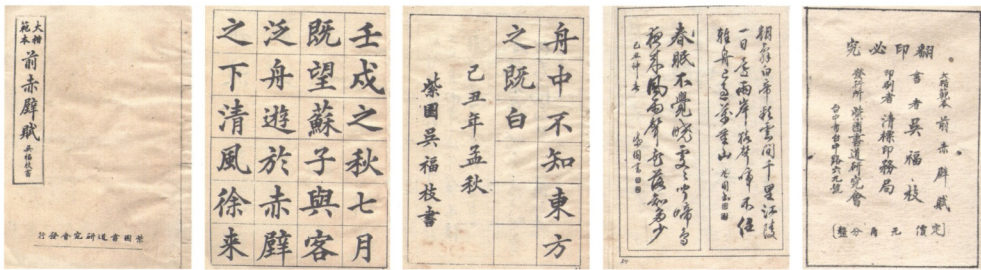 大楷範本
前赤壁賦 吳福枝書
紫園書道研究會發行
壬戌之秋七月
既望蘇子與客
泛舟遊於赤壁
之下清風徐来
舟中不知東方
之既白
己丑年孟秋
紫園吳福枝書
朝辭白帝彩雲間千里江陵
一日還兩岸猿聲啼不住
輕舟已過萬重山
春眠不覺曉處々聞啼鳥
夜來風雨聲花落知多少
翻印必究
大楷範本 前赤壁賦
書者 吳福枝
印刷者 清標印務局
發行所 紫園書道研究會
台中市台中路六九號
〔定價 元 角 分整〕